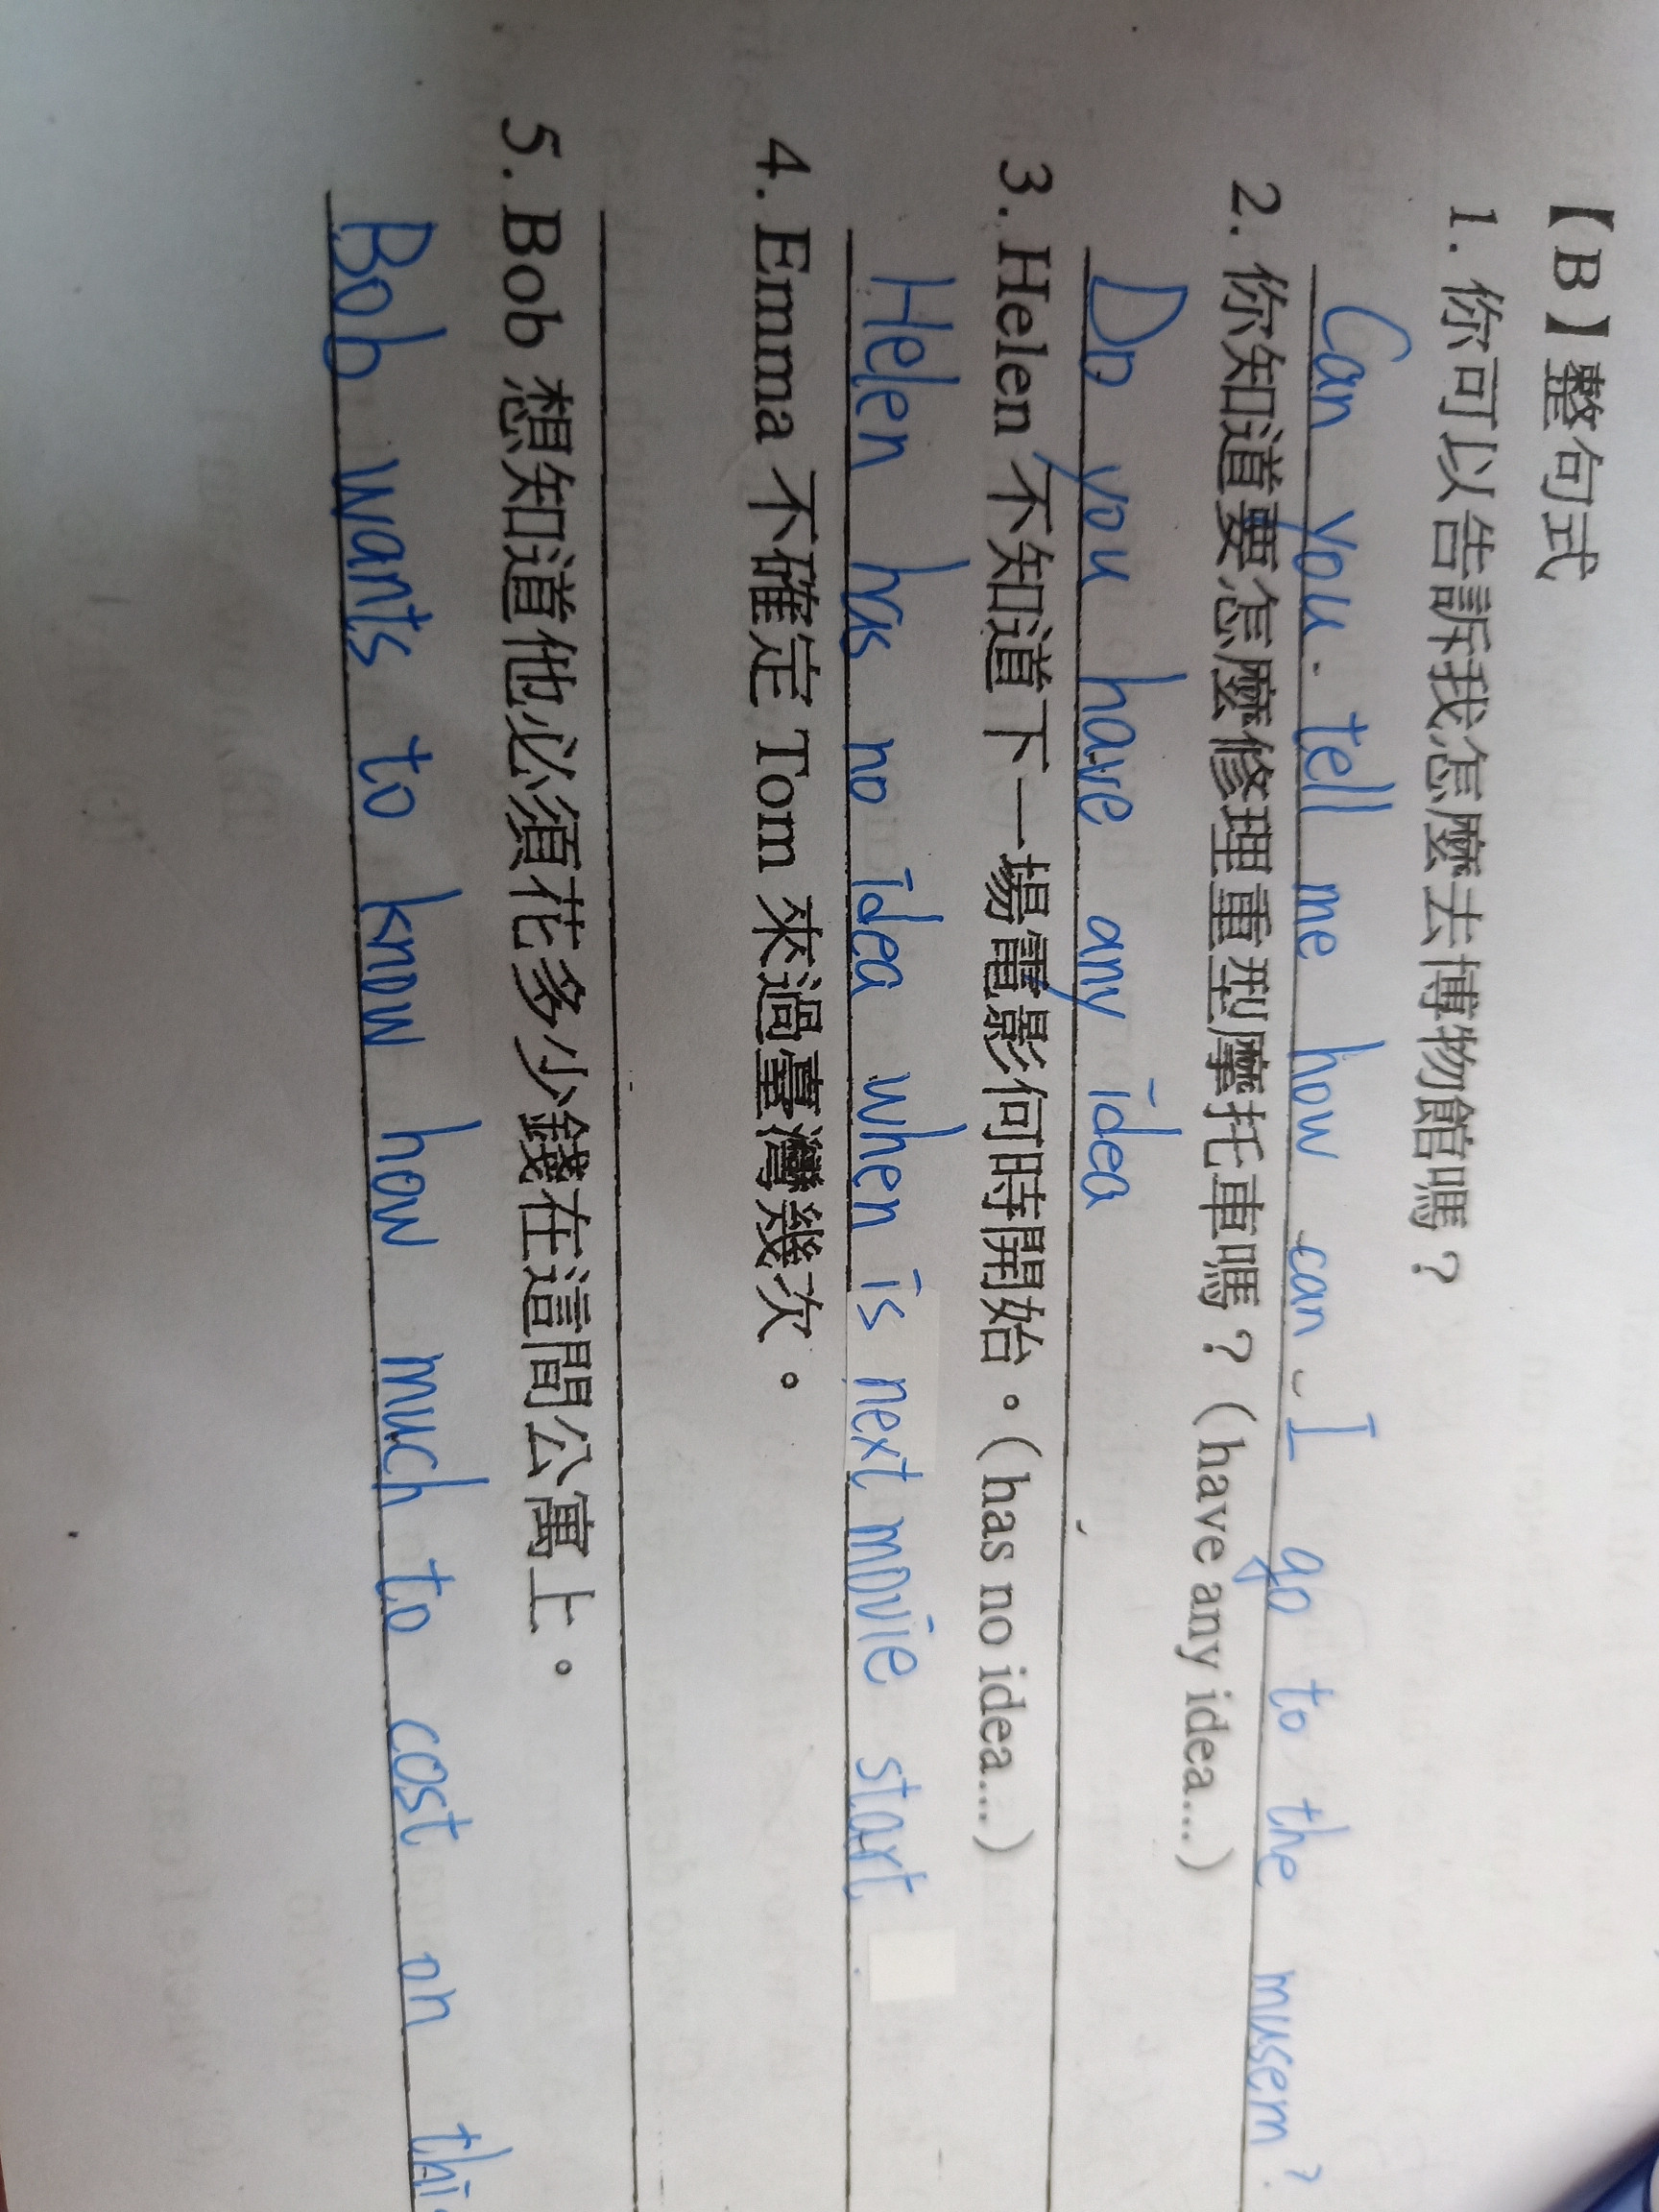 【B】整句式
1. 你可以告訴我怎麼去博物館嗎？
Can you tell me how can I go to the musem?
2. 你知道要怎麼修理重型摩托車嗎？(have any idea...)
Do you have any idea
3. Helen 不知道下一場電影何時開始。(has no idea...)
Helen has no idea when is next movie start
4. Emma 不確定 Tom 來過臺灣幾次。
5. Bob 想知道他必須花多少錢在這間公寓上。
Bob wants to know how much to cost on